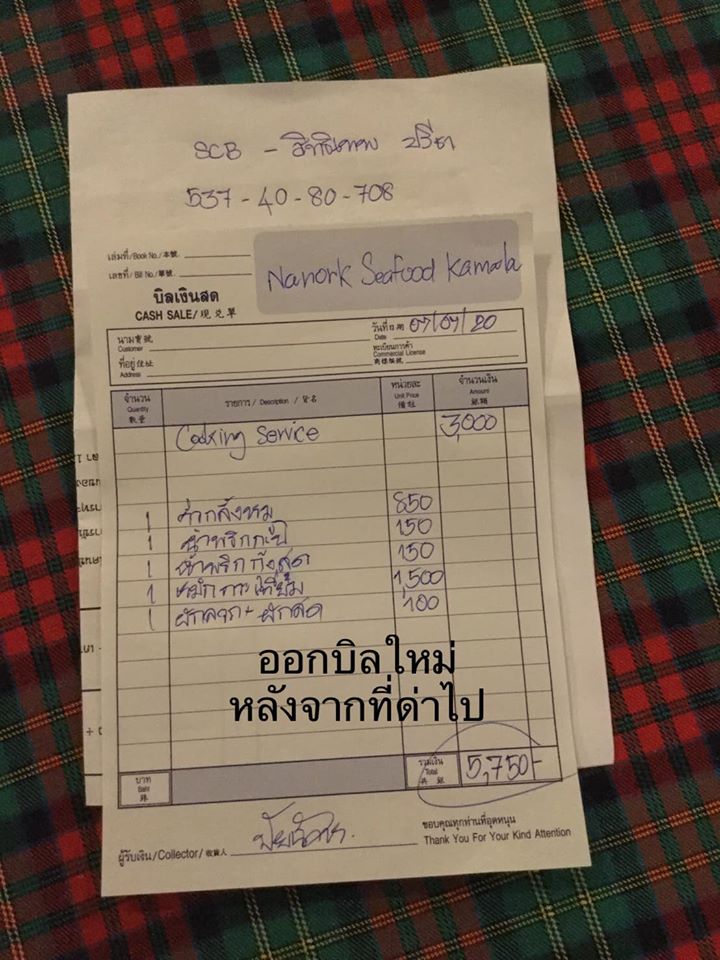 SCB -
537-40-80-708
เล่มที่/Book No./本號
เลขที่/Bill No./單號
Nanork Seafood Kamala
บิลเงินสด
CASH SALE/現兌單
นาม寶號
Customer
วันที่日期 07/04/20
Date
ที่อยู่住址
Address
ทะเบียนการค้า
Commercial License
商標執號
จำนวน รายการ / Description / 貨名 หน่วยละ จำนวนเงิน
Quantity Unit Price Amount
數量 價祉 銀額
Cooking Service 3,000
1 850
1 น้ำพริกกะปิ 150
1 น้ำพริกกุ้งสด 150
1 หมึกกระเทียม 1,500
1 ผักลวก + ผักสด 100
ออกบิลใหม่
หลังจากที่ด่าไป
บาท รวมเงิน 5,750-
Baht Total
銖 共銀
ผู้รับเงิน/Collector/收貨人
ขอบคุณทุกท่านที่อุดหนุน
Thank You For Your Kind Attention